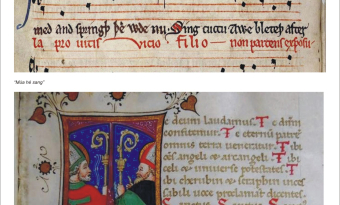 med and springþ þe wde nu. Sing cuccu Awe bleteþ after
ta pro vitis vicio filio non parcens exposu
"Mùa hè sang"
e deum laudamus. Te dnm
confitemur. Te eternū patrē
omnis terra veneratur. Tibi
angeli
celi et universe potestates. Ti
bi cherubin et seraphin inces
sibili voce proclamāt dicentes.